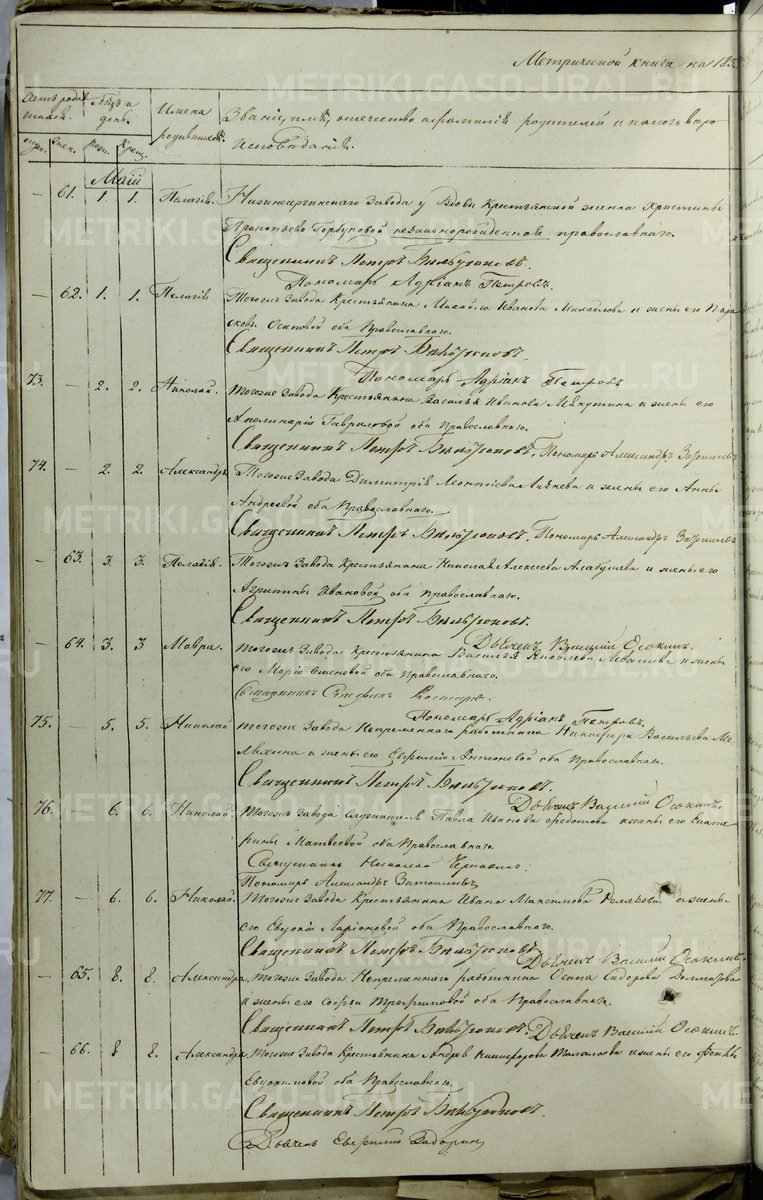 Метрической книги на 185
Счетъ родившихся. Мѣсяцъ и день. Имена родившихся.
Званіе, имя, отчество и фамилія родителей и какого вѣро
исповѣданія.
муж. жен. рожд. крещ.
Маій
— 61. 1. 1. Пелагія. Нижнесергинскаго Завода у Вдовы Крестьянской женки Христины
Прокопьевой Горбуновой незаконорожденная православнаго.
Священникъ Петръ
Пономарь Адріанъ Петровъ.
— 62. 1. 1. Пелагія Тогожъ Завода Крестьянина Михайла Иванова Михайлова и жены его Пара
скевы Осиповой оба Православнаго.
Священникъ Петръ
Пономарь Адріанъ Петровъ
73. — 2. 2. Николай. Тогоже Завода Крестьянина Василья Иванова и жены его
Аполинаріи Гавриловой оба Православнаго.
Священникъ Петръ Пономарь Александръ
74. — 2. 2. Александръ Тогоже Завода Димитрія Леонтьева и жены его Анны
Андреевой оба Православнаго.
Священникъ Петръ Пономарь Александръ
— 63. 3. 3. Пелагія. Тогожъ Завода Крестьянина Николая Алексѣева и жены его
Агрипины Ивановой оба православнаго.
Священникъ Петръ
Дьячекъ Василій Осокинъ.
— 64. 3. 3 Мавра. Тогожъ Завода Крестьянина Василья Яковлева и жены
его Маріи Семеновой оба православнаго.
Священникъ Стефанъ
Пономарь Адріанъ Петровъ.
75. — 5. 5. Николай Тогоже Завода Непременнаго работника Никифора Васильева Ме
лехина и жены его Евфиміи Антоновой оба Православнаго.
Священникъ Петръ
Дьячекъ Василій Осокинъ.
76. 6. 6. Николай. Тогожъ Завода Служителя Павла Иванова Федотова и жены его Екате
рины Матвеевой оба Православнаго.
Священникъ Николай
Пономарь Александръ
77. — 6. 6. Николай. Тогоже Завода Крестьянина Ивана Максимова и жены
его Евдокіи Ларіоновой оба Православнаго.
Священникъ Петръ
Дьячекъ Василій Осокинъ.
— 65. 8. 8. Александра. Тогоже Завода Непременнаго работника Осипа Сидорова
и жены его Софьи Трофимовой оба Православнаго.
Священникъ Петръ Дьячекъ Василій Осокинъ
— 66. 8 8. Александра Тогоже Завода Крестьянина Андрея Никифорова Талалаева и жены его Феклы
Евдокимовой оба Православнаго.
Священникъ Петръ
Дьячекъ Евфимій
METRIKI.GASO-URAL.RU